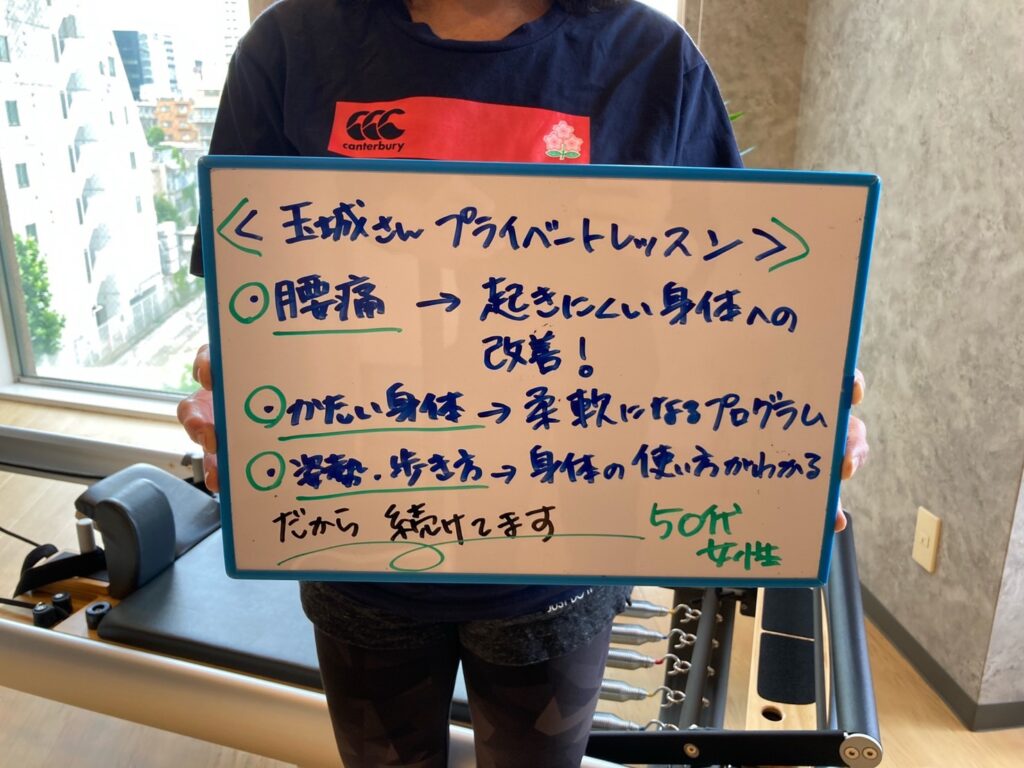 canterbury
<玉城さん プライベートレッスン>
・腰痛 → 起きにくい身体への
改善!
・かたい身体 → 柔軟になるプログラム
・姿勢・歩き方 → 身体の使い方がわかる
だから 続けてます
50代
女性
JUST DO IT